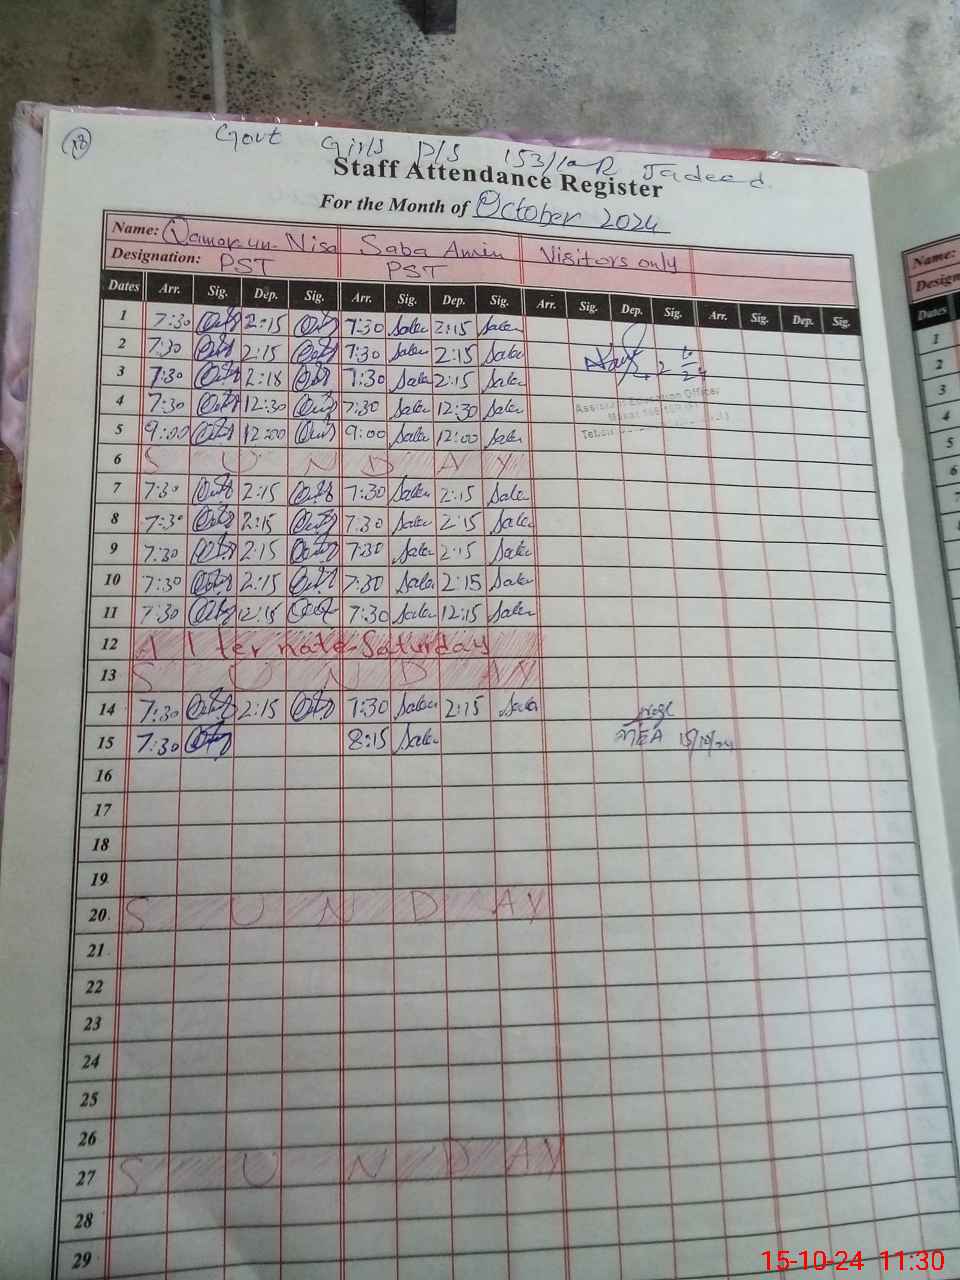 Govt Girls P/S 153/10-R Jadeed
Staff Attendance Register
For the Month of October 2024
Name: Qamar-un-Nisa Saba Amin Visitors only
Designation: PST PST
Dates Arr. Sig. Dep. Sig. Arr. Sig. Dep. Sig. Arr. Sig. Dep. Sig. Arr. Sig. Dep. Sig.
1 7:30 2:15 7:30 Saba 2:15 Saba
2 7:30 2:15 7:30 Saba 2:15 Saba
3 7:30 2:18 7:30 Saba 2:15 Saba
4 7:30 12:30 7:30 Saba 12:30 Saba
Assistant Education Officer
5 9:00 12:00 9:00 Saba 12:00 Saba
6 S U N D A Y
7 7:30 2:15 7:30 Saba 2:15 Saba
8 7:30 2:15 7:30 Saba 2:15 Saba
9 7:30 2:15 7:30 Saba 2:15 Saba
10 7:30 2:15 7:30 Saba 2:15 Saba
11 7:30 12:15 7:30 Saba 12:15 Saba
12 Alternate Saturday
13 S U N D A Y
14 7:30 2:15 7:30 Saba 2:15 Saba
15 7:30 8:15 Saba MEA 15/10/24
16
17
18
19
20 S U N D A Y
21
22
23
24
25
26
27 S U N D A Y
28
29
Name:
Design
Dates
1
2
3
4
5
6
7
15-10-24 11:30